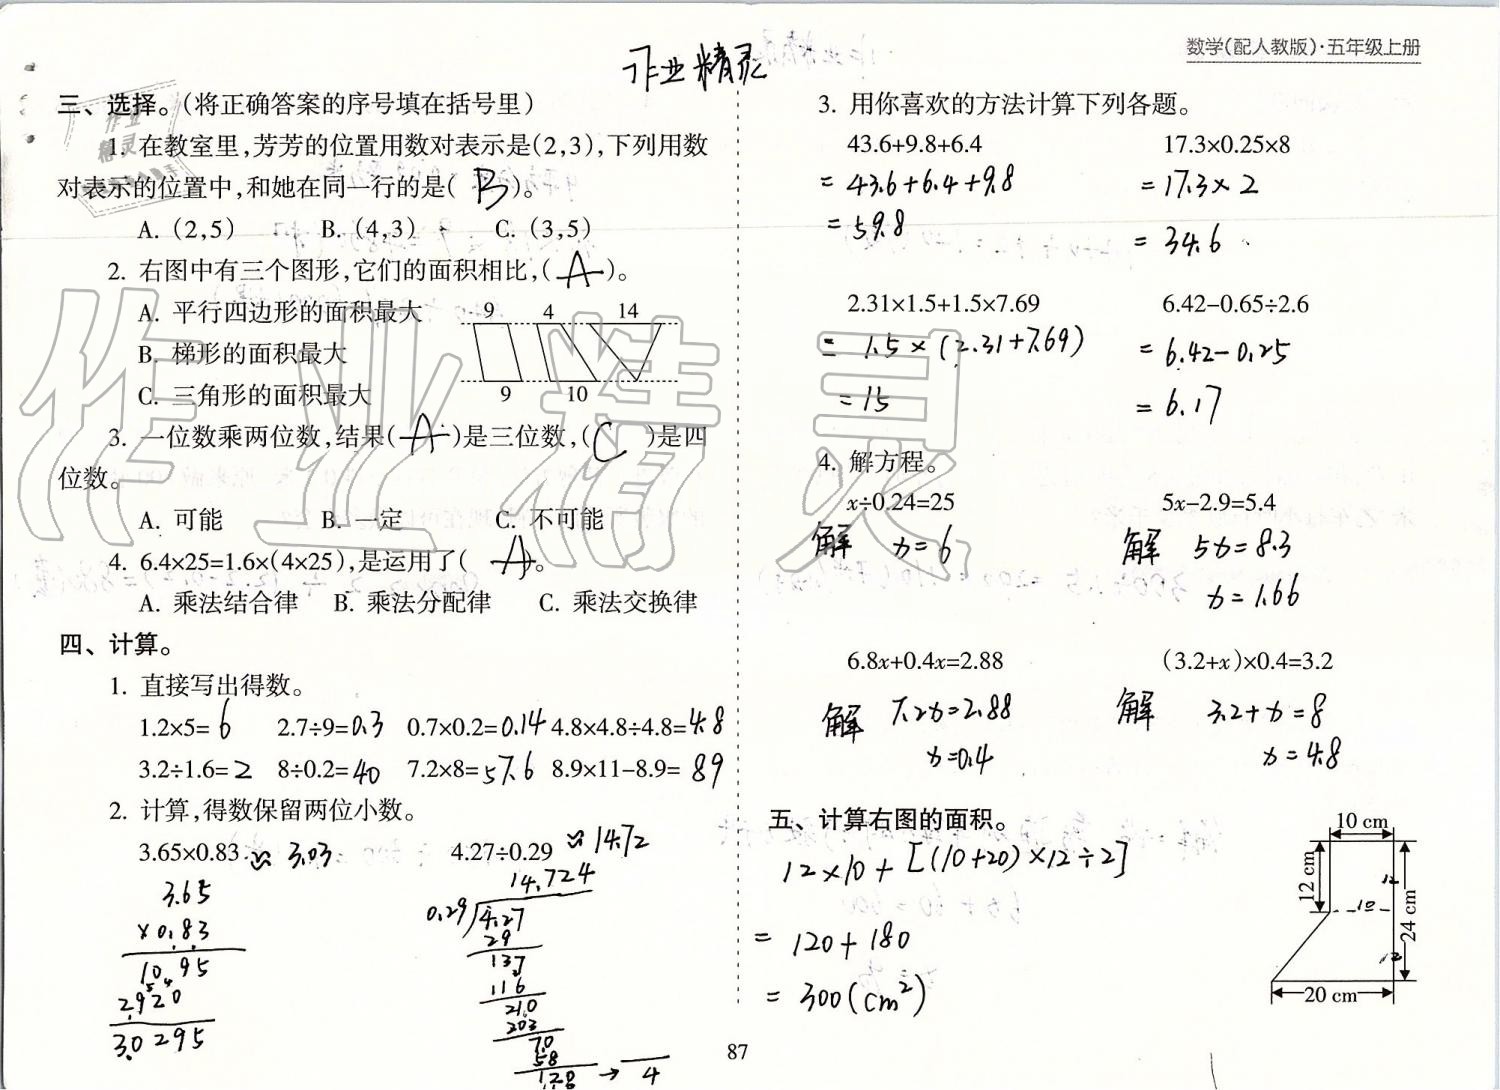 数学(配人教版)·五年级上册
作业精灵
三、选择。(将正确答案的序号填在括号里)
1. 在教室里,芳芳的位置用数对表示是(2,3),下列用数
对表示的位置中,和她在同一行的是( B )。
A. (2,5) B. (4,3) C. (3,5)
2. 右图中有三个图形,它们的面积相比,( A )。
A. 平行四边形的面积最大
B. 梯形的面积最大
C. 三角形的面积最大
9 4 14
9 10
3. 一位数乘两位数,结果( A )是三位数,( C )是四
位数。
A. 可能 B. 一定 C. 不可能
4. 6.4×25=1.6×(4×25),是运用了( A )。
A. 乘法结合律 B. 乘法分配律 C. 乘法交换律
四、计算。
1. 直接写出得数。
1.2×5=6 2.7÷9=0.3 0.7×0.2=0.14 4.8×4.8÷4.8=4.8
3.2÷1.6=2 8÷0.2=40 7.2×8=57.6 8.9×11-8.9=89
2. 计算,得数保留两位小数。
3.65×0.83≈3.03 4.27÷0.29≈14.72
3.65
×0.83
1095
2920
3.0295
14.724
0.29 4.27
29
137
116
210
203
70
58
120 → 4
3. 用你喜欢的方法计算下列各题。
43.6+9.8+6.4 17.3×0.25×8
=43.6+6.4+9.8 =17.3×2
=59.8 =34.6
2.31×1.5+1.5×7.69 6.42-0.65÷2.6
=1.5×(2.31+7.69) =6.42-0.25
=15 =6.17
4. 解方程。
x÷0.24=25 5x-2.9=5.4
解 x=6 解 5x=8.3
x=1.66
6.8x+0.4x=2.88 (3.2+x)×0.4=3.2
解 7.2x=2.88 解 3.2+x=8
x=0.4 x=4.8
五、计算右图的面积。
12×10+[(10+20)×12÷2]
=120+180
=300(cm²)
10 cm
12 cm
12
10
24 cm
12
20 cm
87
作业精灵